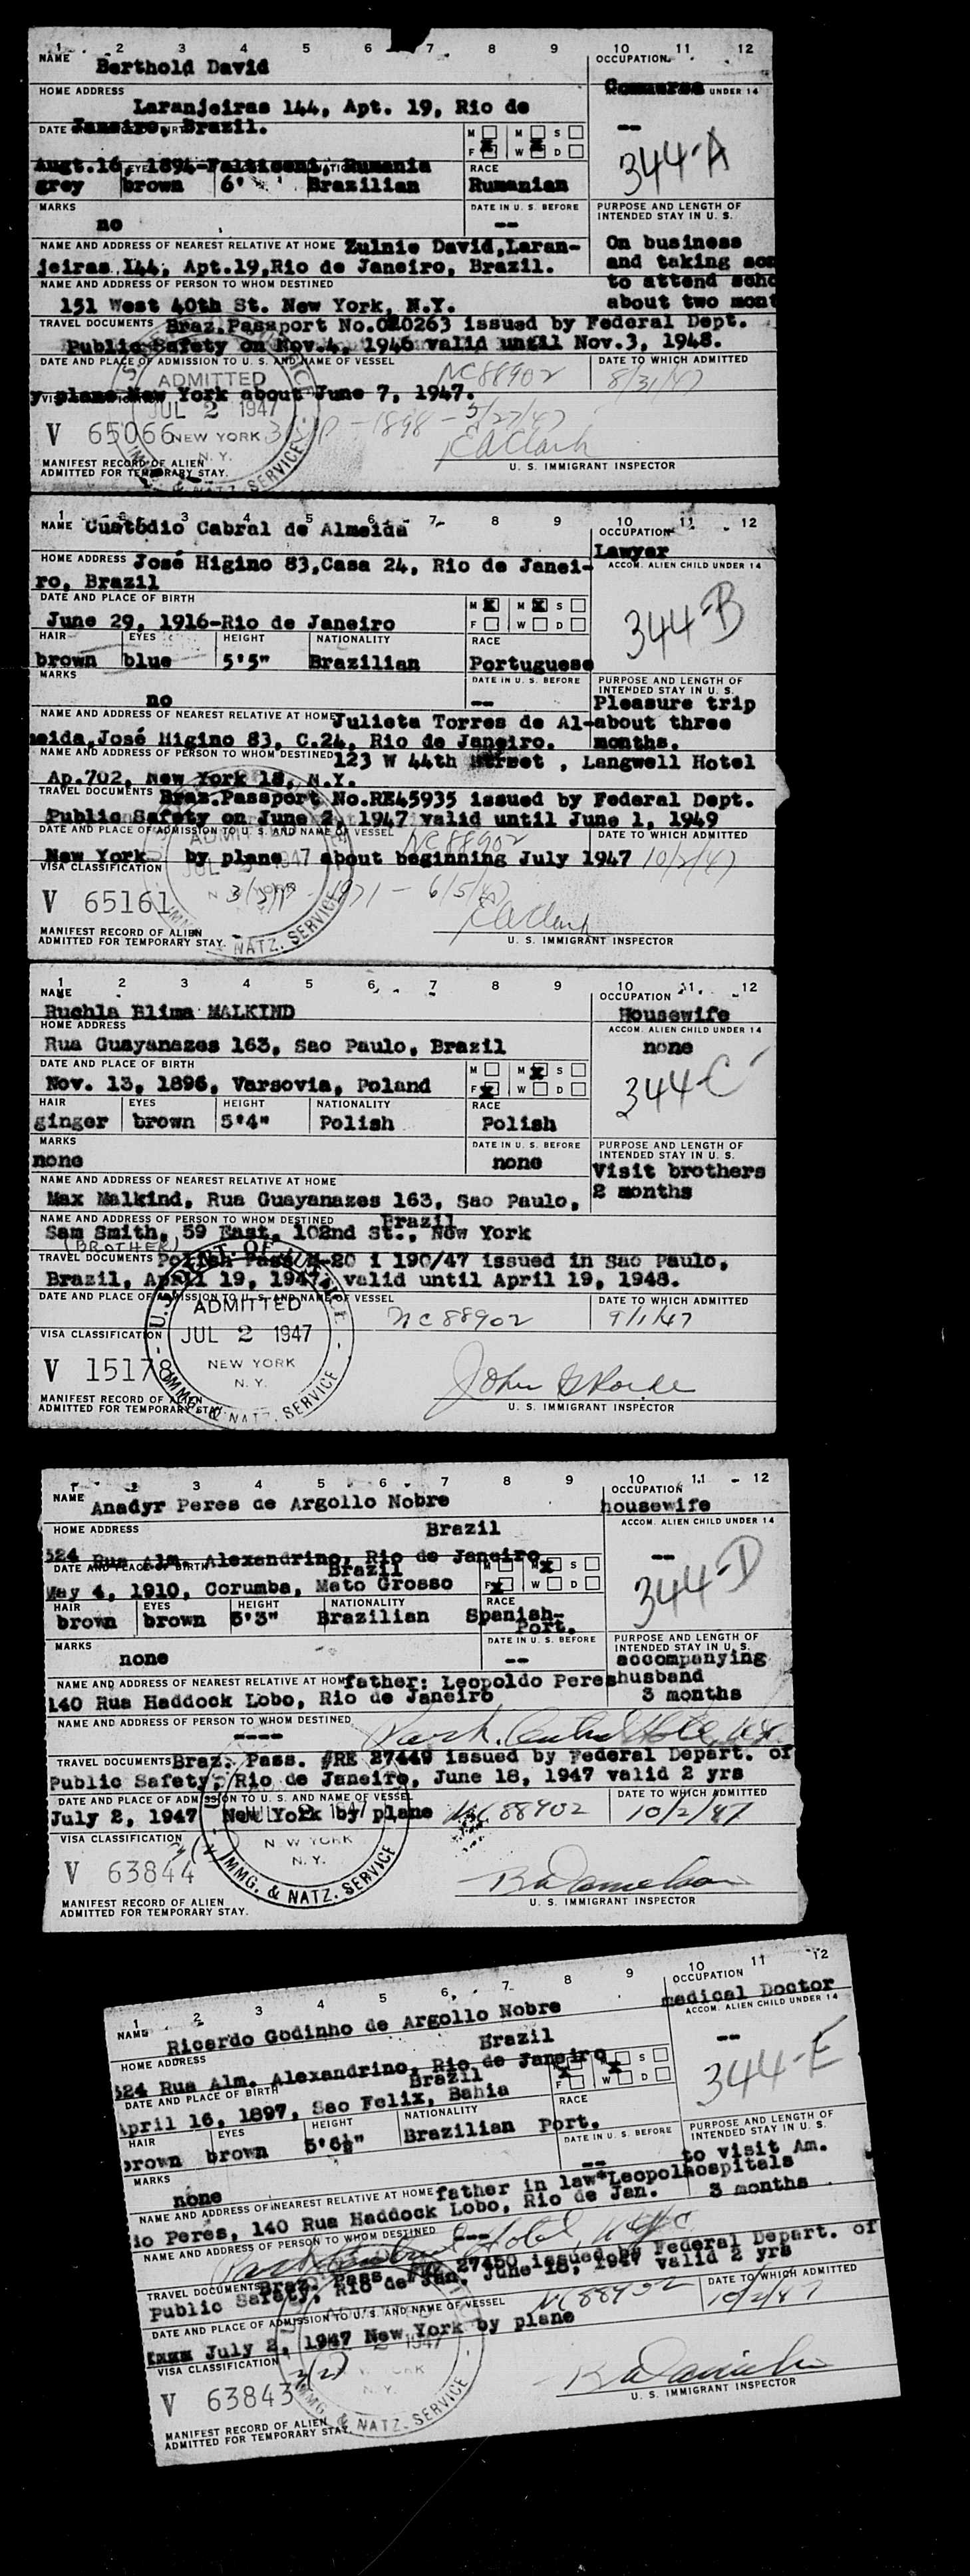 1 2 3 4 5 6 7 8 9 10 11 12
NAME Berthold David
OCCUPATION
Commerce UNDER 14
HOME ADDRESS
Laranjeiras 144, Apt. 19, Rio de
Janeiro, Brazil.
DATE
--
344-A
M M S
F W D
Augt.16, 1894-Falticeni, Rumania
grey brown 6' Brazilian
RACE
Rumanian
MARKS
no
DATE IN U. S. BEFORE
--
PURPOSE AND LENGTH OF
INTENDED STAY IN U. S.
On business
and taking son
to attend scho
about two mont
NAME AND ADDRESS OF NEAREST RELATIVE AT HOME Zulnie David,Laran-
jeiras 144, Apt.19,Rio de Janeiro, Brazil.
NAME AND ADDRESS OF PERSON TO WHOM DESTINED
151 West 40th St. New York, N.Y.
TRAVEL DOCUMENTS Braz.Passport No.020263 issued by Federal Dept.
Public Safety on Nov.4, 1946 valid until Nov.3, 1948.
DATE AND PLACE OF ADMISSION TO U. S. AND NAME OF VESSEL
NC88902
DATE TO WHICH ADMITTED
8/31/47
y plane New York about June 7, 1947.
ADMITTED
JUL 2 1947
NEW YORK
N. Y.
IMMG. & NATZ. SERVICE
V 65066
- 1898 - 5/27/47
EAClark
U. S. IMMIGRANT INSPECTOR
MANIFEST RECORD OF ALIEN
ADMITTED FOR TEMPORARY STAY.
1 2 3 4 5 6 7 8 9 10 11 12
NAME Custódio Cabral de Almeida
OCCUPATION
Lawyer
HOME ADDRESS José Higino 83,Casa 24, Rio de Janei-
ro, Brazil
ACCOM. ALIEN CHILD UNDER 14
344-B
DATE AND PLACE OF BIRTH
June 29, 1916-Rio de Janeiro
M M S
F W D
HAIR EYES HEIGHT NATIONALITY RACE
brown blue 5'5" Brazilian Portuguese
MARKS
no
DATE IN U. S. BEFORE
--
PURPOSE AND LENGTH OF
INTENDED STAY IN U. S.
Pleasure trip
about three
months.
NAME AND ADDRESS OF NEAREST RELATIVE AT HOME Julieta Torres de Al-
meida,José Higino 83, C.24, Rio de Janeiro.
NAME AND ADDRESS OF PERSON TO WHOM DESTINED 123 W 44th Street , Langwell Hotel
Ap.702, New York 18, N.Y.
TRAVEL DOCUMENTS Braz.Passport No.RE45935 issued by Federal Dept.
Public Safety on June 2, 1947 valid until June 1, 1949
DATE AND PLACE OF ADMISSION TO U. S. AND NAME OF VESSEL
NC88902
DATE TO WHICH ADMITTED
New York by plane about beginning July 1947 10/2/47
VISA CLASSIFICATION
V 65161
1971 - 6/5/47
EAClark
IMMG. & NATZ. SERVICE
MANIFEST RECORD OF ALIEN
ADMITTED FOR TEMPORARY STAY.
U. S. IMMIGRANT INSPECTOR
1 2 3 4 5 6 7 8 9 10 11 12
NAME
Ruchla Blima MALKIND
OCCUPATION
Housewife
HOME ADDRESS
Rua Guayanazes 163, Sao Paulo, Brazil
ACCOM. ALIEN CHILD UNDER 14
none
344-C
DATE AND PLACE OF BIRTH
Nov. 13, 1896, Varsovia, Poland
M M S
F W D
HAIR EYES HEIGHT NATIONALITY RACE
ginger brown 5'4" Polish Polish
MARKS
none
DATE IN U. S. BEFORE
none
PURPOSE AND LENGTH OF
INTENDED STAY IN U. S.
Visit brothers
2 months
NAME AND ADDRESS OF NEAREST RELATIVE AT HOME
Max Malkind, Rua Guayanazes 163, Sao Paulo,
Brazil
NAME AND ADDRESS OF PERSON TO WHOM DESTINED
Sam Smith, 59 East, 102nd St., New York
(BROTHER)
TRAVEL DOCUMENTS Polish Pass H-20 1 190/47 issued in Sao Paulo,
Brazil, April 19, 1947, valid until April 19, 1948.
DATE AND PLACE OF ADMISSION TO U. S. AND NAME OF VESSEL
NC88902
DATE TO WHICH ADMITTED
9/1/47
ADMITTED
JUL 2 1947
NEW YORK
N. Y.
IMMG. & NATZ. SERVICE
VISA CLASSIFICATION
V 15178
MANIFEST RECORD OF ALIEN
ADMITTED FOR TEMPORARY STAY
U. S. IMMIGRANT INSPECTOR
1 2 3 4 5 6 7 8 9 10 11 12
NAME Anadyr Peres de Argollo Nobre
OCCUPATION
housewife
HOME ADDRESS
Brazil
524 Rua Alm. Alexandrino, Rio de Janeiro
ACCOM. ALIEN CHILD UNDER 14
--
344-D
DATE AND PLACE OF BIRTH
Brazil
May 4, 1910, Corumba, Mato Grosso
M M S
F W D
HAIR EYES HEIGHT NATIONALITY RACE
brown brown 5'3" Brazilian Spanish-
Port.
MARKS
none
DATE IN U. S. BEFORE
--
PURPOSE AND LENGTH OF
INTENDED STAY IN U. S.
accompanying
husband
3 months
NAME AND ADDRESS OF NEAREST RELATIVE AT HOME father: Leopoldo Peres
140 Rua Haddock Lobo, Rio de Janeiro
NAME AND ADDRESS OF PERSON TO WHOM DESTINED
----
Park Central Hotel, NYC
TRAVEL DOCUMENTS Braz. Pass. #RE 27449 issued by Federal Depart. of
Public Safety, Rio de Janeiro, June 18, 1947 valid 2 yrs
DATE AND PLACE OF ADMISSION TO U. S. AND NAME OF VESSEL
DATE TO WHICH ADMITTED
July 2, 1947 New York by plane NC88902 10/2/47
VISA CLASSIFICATION
V 63844
NEW YORK
N. Y.
IMMG. & NATZ. SERVICE
MANIFEST RECORD OF ALIEN
ADMITTED FOR TEMPORARY STAY.
U. S. IMMIGRANT INSPECTOR
1 2 3 4 5 6 7 8 9 10 11 12
NAME Ricardo Godinho de Argollo Nobre
OCCUPATION
medical Doctor
HOME ADDRESS
Brazil
524 Rua Alm. Alexandrino, Rio de Janeiro
ACCOM. ALIEN CHILD UNDER 14
--
344-E
DATE AND PLACE OF BIRTH
Brazil
April 16, 1897, Sao Felix, Bahia
S
F W D
HAIR EYES HEIGHT NATIONALITY RACE
brown brown 5'6½" Brazilian Port.
MARKS
none
DATE IN U. S. BEFORE
--
PURPOSE AND LENGTH OF
INTENDED STAY IN U. S.
to visit Am.
hospitals
3 months
NAME AND ADDRESS OF NEAREST RELATIVE AT HOME father in law*Leopol
do Peres, 140 Rua Haddock Lobo, Rio de Jan.
NAME AND ADDRESS OF PERSON TO WHOM DESTINED
---
Park Central Hotel, NYC
TRAVEL DOCUMENTS Braz. Pass 27450 issued by Federal Depart. of
Public Safety, Rio de Jan. June 18, 1947 valid 2 yrs
DATE AND PLACE OF ADMISSION TO U. S. AND NAME OF VESSEL
NC88902
DATE TO WHICH ADMITTED
10/2/47
July 2, 1947 New York by plane
VISA CLASSIFICATION
V 63843
IMMG. & NATZ. SERVICE
MANIFEST RECORD OF ALIEN
ADMITTED FOR TEMPORARY STAY.
U. S. IMMIGRANT INSPECTOR